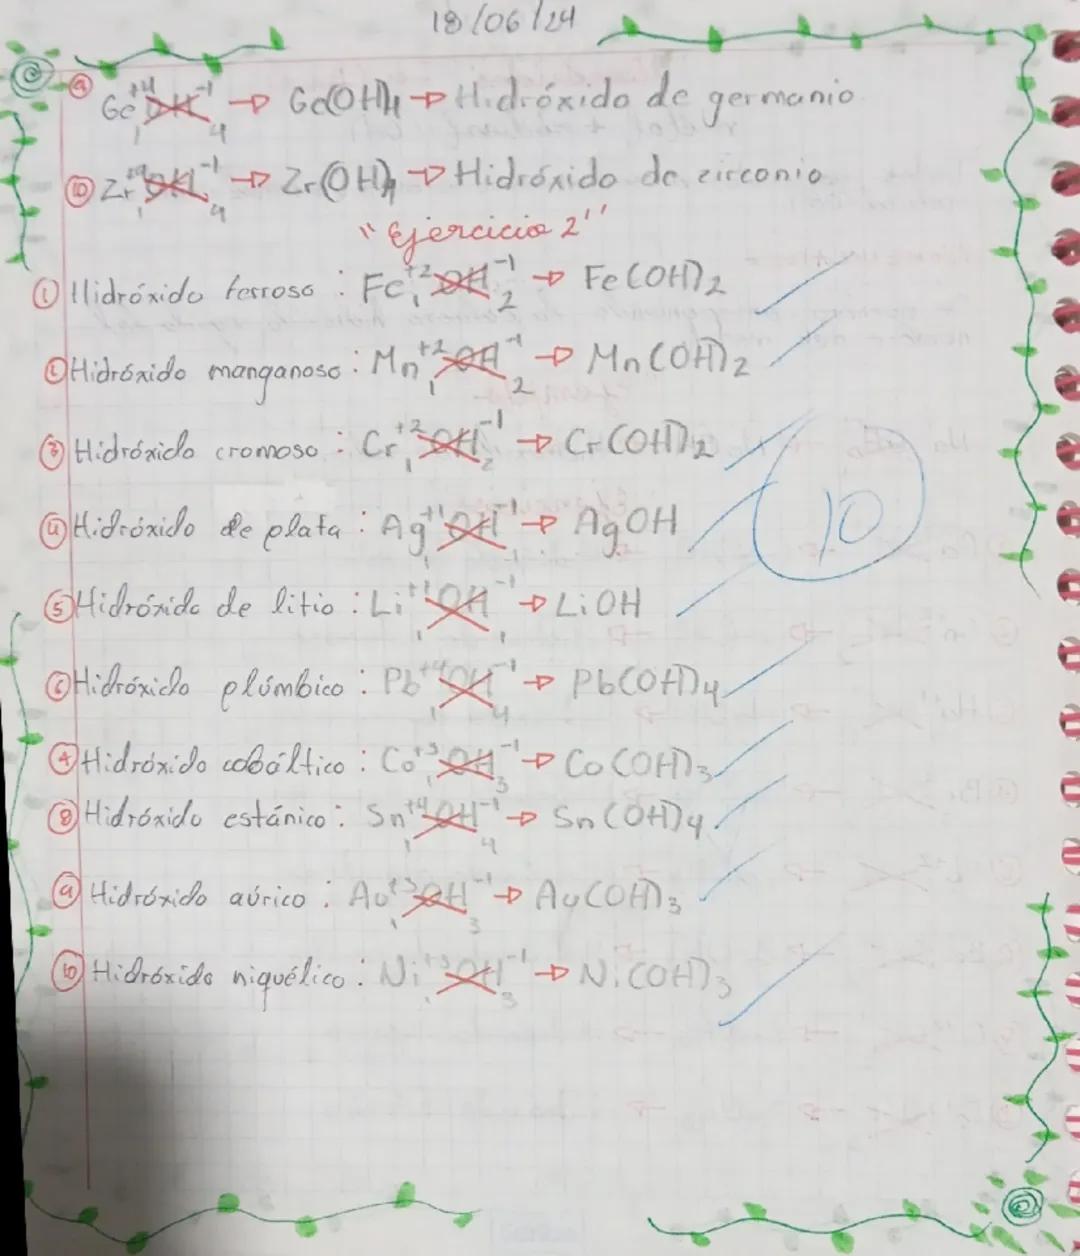 18/06/24
9 Ge+4 OH-1 1 4 → Ge(OH)4 → Hidróxido de germanio
10 Zr+4 OH-1 1 4 → Zr(OH)4 → Hidróxido de zirconio
"Ejercicio 2"
1 Hidróxido ferroso : Fe+2 OH-1 1 2 → Fe(OH)2
2 Hidróxido manganoso : Mn+2 OH-1 1 2 → Mn(OH)2
3 Hidróxido cromoso : Cr+2 OH-1 1 2 → Cr(OH)2
4 Hidróxido de plata : Ag+1 OH-1 1 → AgOH
5 Hidróxido de litio : Li+1 OH-1 1 1 → LiOH
6 Hidróxido plúmbico : Pb+4 OH-1 1 4 → Pb(OH)4
7 Hidróxido cobáltico : Co+3 OH-1 1 3 → Co(OH)3
8 Hidróxido estánico : Sn+4 OH-1 1 4 → Sn(OH)4
9 Hidróxido aúrico : Au+3 OH-1 1 3 → Au(OH)3
10 Hidróxido niquélico : Ni+3 OH-1 1 3 → Ni(OH)3
10